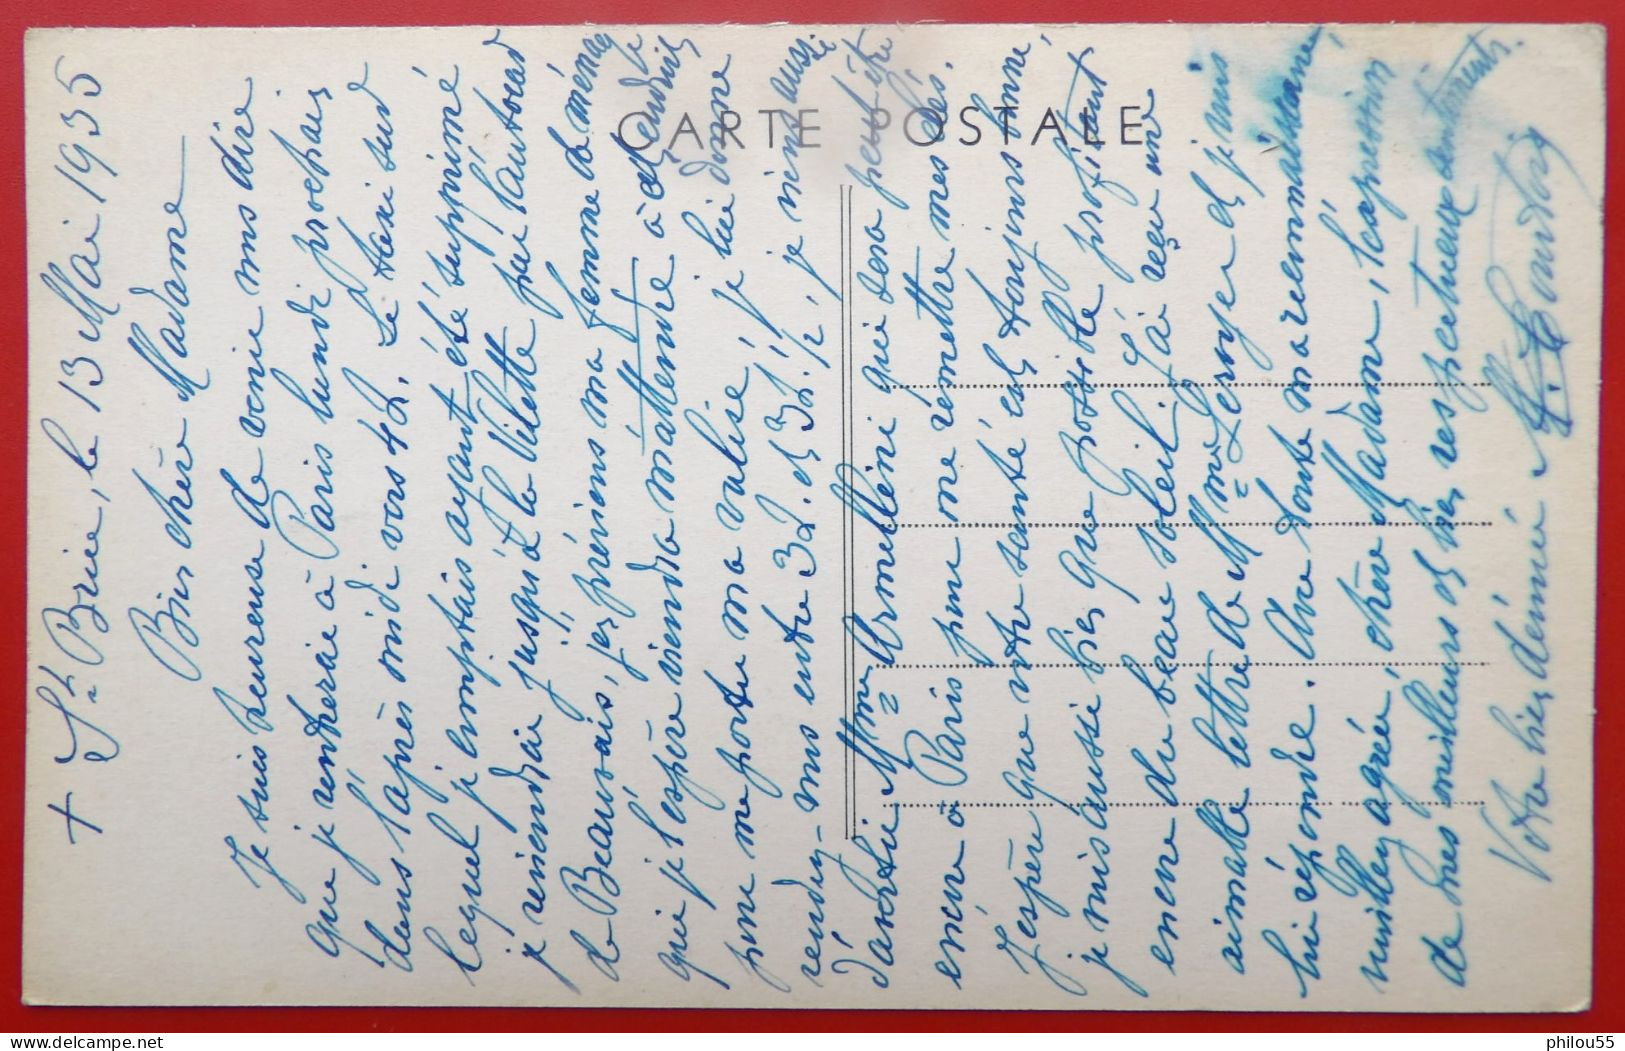 + St Brice, le 13 Mai 1935
Bien chère Madame
Je suis heureuse de venir vous dire
que je rentrerai à Paris lundi prochain
dans l'après midi vers 4h. Le taxi sur
lequel je comptais ayant été supprimé
je reviendrai jusqu'à la Vilette par l'autocar
de Beauvais, j'en préviens ma femme de ménage
que je l'espère viendra m'attendre à l'endroit
pour me porter ma valise, je lui donne
rendez-vous entre 3h. et 3h.1/2, je viens aussi
d'avertir Mme Armellini qui sera peut-être
encore à Paris pour me remettre mes clés.
J'espère que votre santé est toujours bonne,
je suis aussi bien que possible profitant
encore du beau soleil. J'ai reçu une
aimable lettre de Mme Leroyer et je vais
lui répondre.
veuillez agréer, chère Madame, l'expression
de mes meilleurs et bien respectueux sentiments.
Votre bien dévouée
CARTE POSTALE
philou55